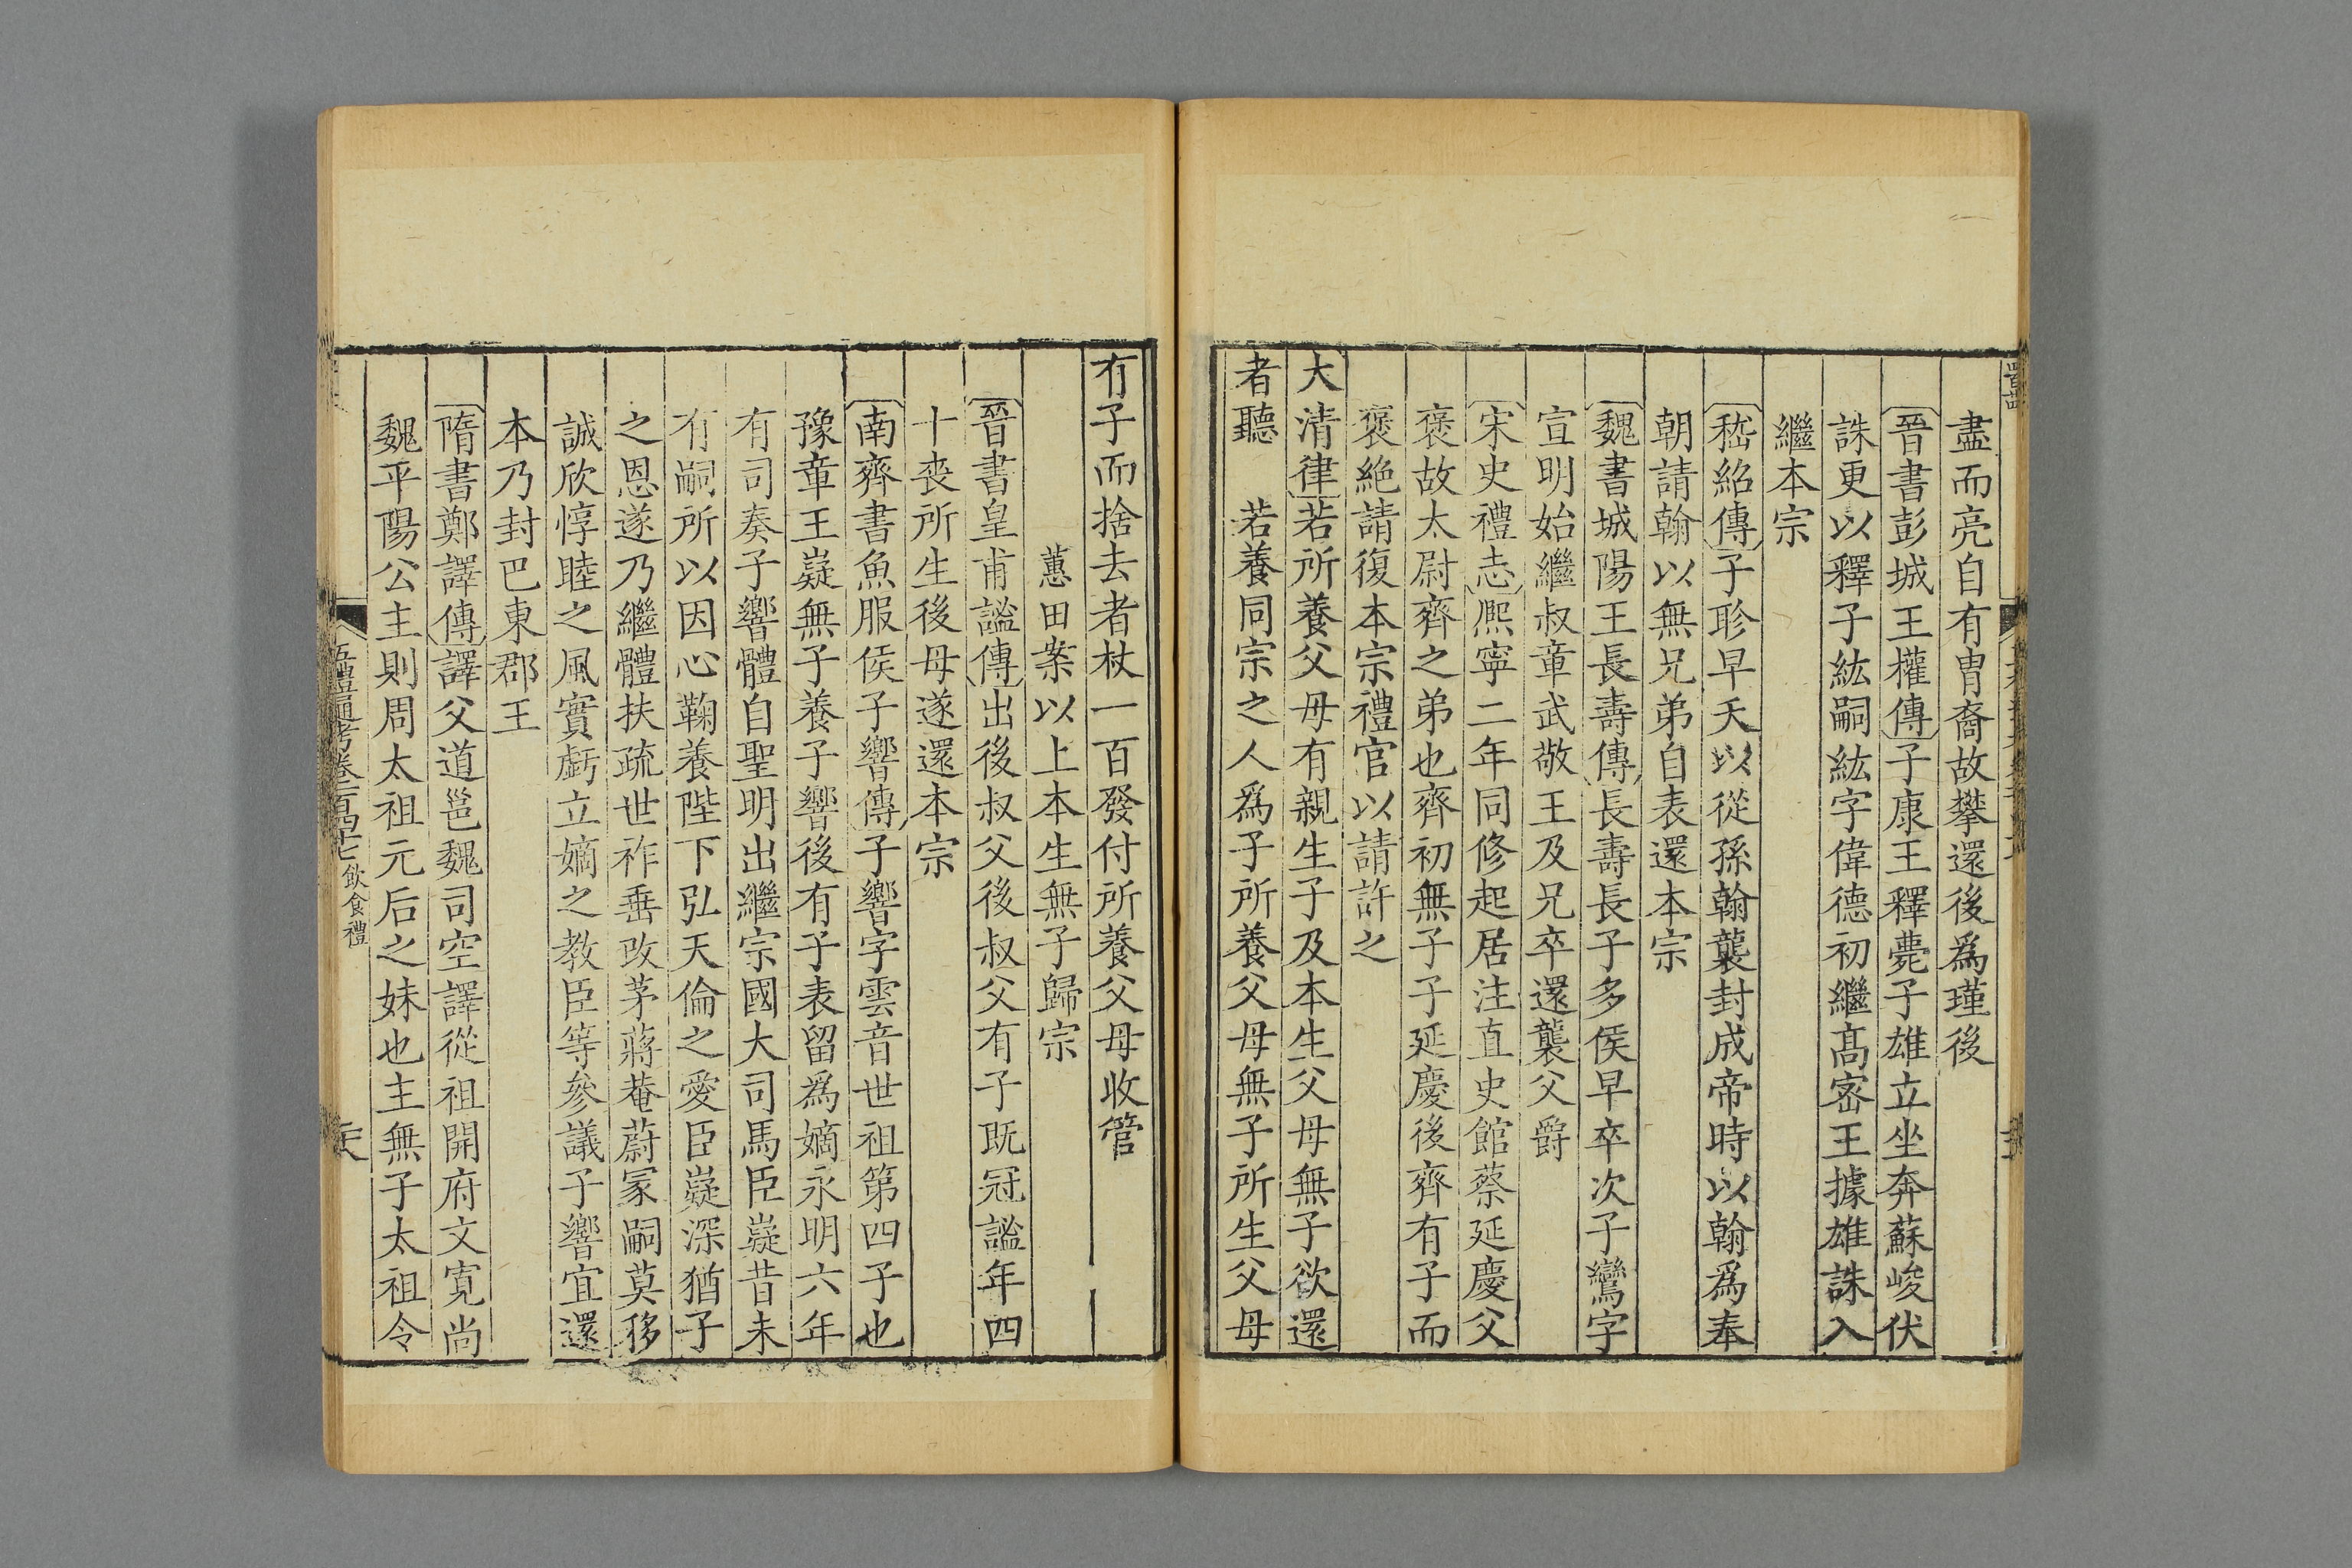 盡而亮自有胄裔故攀還後爲瑾後
晉書彭城王權傳子康王釋薨子雄立坐奔蘇峻伏
誅更以釋子紘嗣紘字偉德初繼高密王據雄誅入
繼本宗
嵇紹傳子眕早夭以從孫翰襲封成帝時以翰爲奉
朝請翰以無兄弟自表還本宗
魏書城陽王長壽傳長壽長子多侯早卒次子鸞字
宣明始繼叔章武敬王及兄卒還襲父爵
宋史禮志熙寧二年同修起居注直史館蔡延慶父
褒故太尉齊之弟也齊初無子子延慶後齊有子而
褒絶請復本宗禮官以請許之
大清律若所養父母有親生子及本生父母無子欲還
者聽 若養同宗之人爲子所養父母無子所生父母
有子而捨去者杖一百發付所養父母收管
蕙田案以上本生無子歸宗
晉書皇甫謐傳出後叔父後叔父有子既冠謐年四
十喪所生後母遂還本宗
南齊書魚服侯子響傳子響字雲音世祖第四子也
豫章王嶷無子養子響後有子表留爲嫡永明六年
有司奏子響體自聖明出繼宗國大司馬臣嶷昔未
有嗣所以因心鞠養陛下弘天倫之愛臣嶷深猶子
之恩遂乃繼體扶疏世祚垂改茅蔣菴蔚冡嗣莫移
誠欣惇睦之風實虧立嫡之教臣等參議子響宜還
本乃封巴東郡王
隋書鄭譯傳譯父道邕魏司空譯從祖開府文寬尚
魏平陽公主則周太祖元后之妹也主無子太祖令
五禮通考卷一百四十七 飲食禮